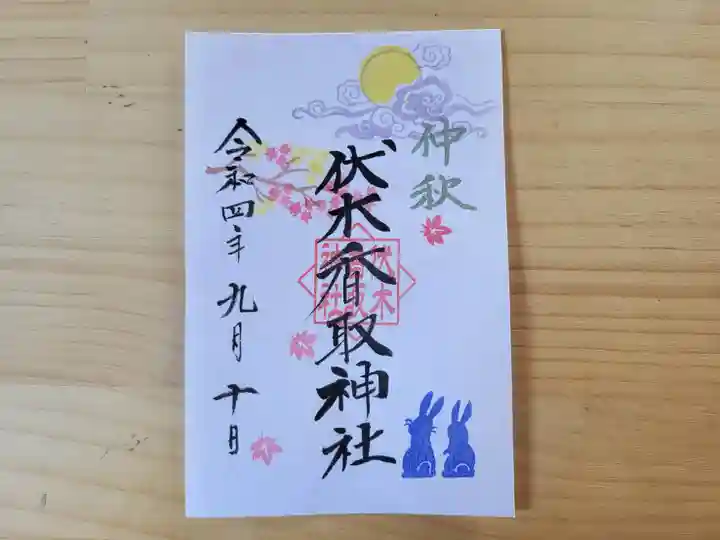 仲秋
伏木香取神社
伏木
香取
神社
令和四年九月十日